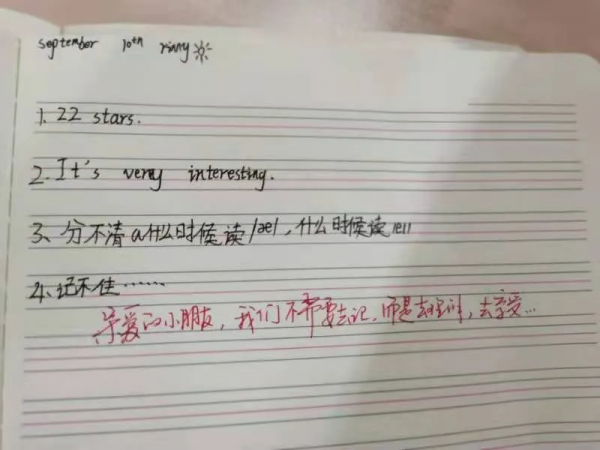 September 10th rainy
1. 22 stars.
2. It's very interesting.
3、分不清a什么时候读/æ/,什么时候读/eɪ/
4、记不住……
亲爱的小朋友,我们不需要去记,而是去培训,去享受…